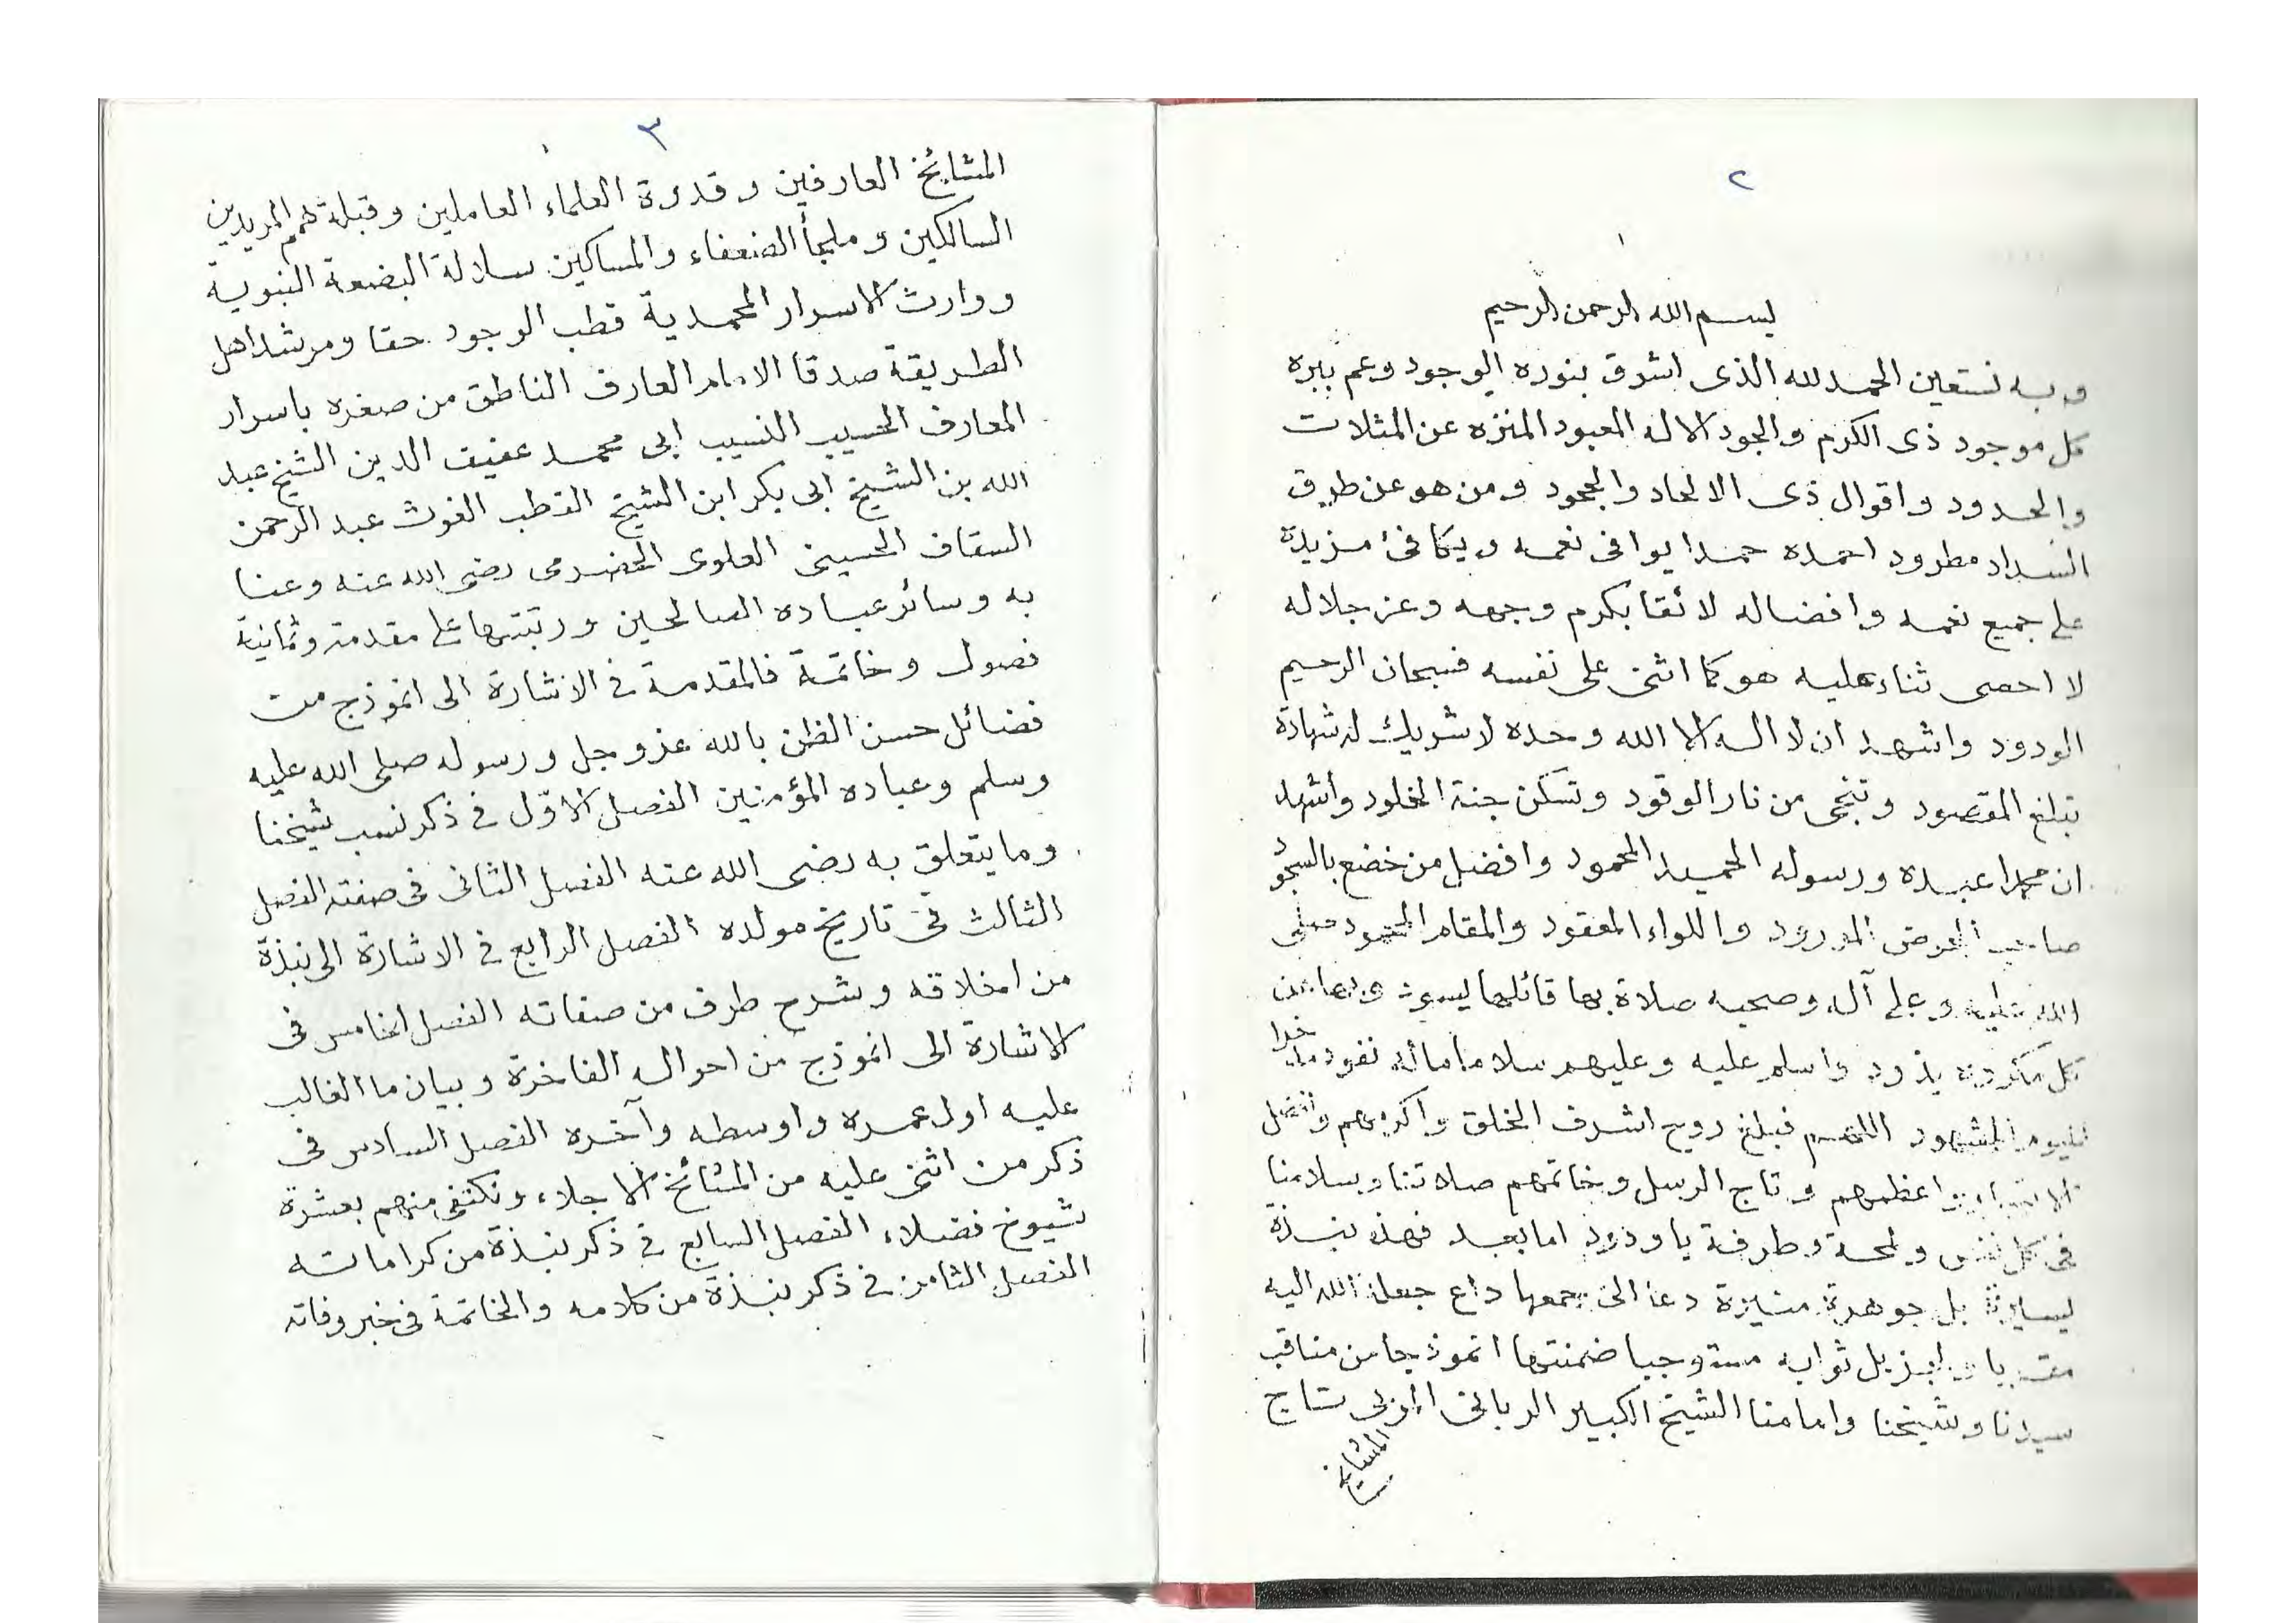 ٢
بسم الله الرحمن الرحيم
وبه نستعين الحمد لله الذى اشرق بنوره الوجود وعم ببره
كل موجود ذى الكرم والجود الاله المعبود المنزه عن المثلات
والحدود واقوال ذى الالحاد والجحود ومن هو عن طريق
السداد مطرود احمده حمدا يوافى نعمه ويكافئ مزيدة
على جميع نعمه وافضاله لائقا بكرم وجهه وعز جلاله
لا احصى ثناء عليه هو كما اثنى على نفسه فسبحان الرحيم
الودود واشهد ان لا اله الا الله وحده لا شريك له شهادة
تبلغ المقصود وتنجى من نار الوقود وتسكن جنة الخلود وأشهد
ان محمدا عبده ورسوله الحميد المحمود وافضل من خضع بالسجود
صاحب الحوض المورود واللواء المعقود والمقام المحمود صلى
الله عليه وعلى آله وصحبه صلاة بها قائلها يسود وبها عن
كل مكروه يذود واسلم عليه وعليهم سلاما
لليوم المشهود اللهم فبلغ روح اشرف الخلق واكرمهم وافضل
الانبياء واعظمهم وتاج الرسل وخاتمهم صلاتنا وسلامنا
فى كل نفس ولمحة وطرفة يا ودود اما بعد فهذه نبذة
يسيرة بل جوهرة منيرة دعا الى جمعها داع جعله الله اليه
ثوابه مستوجبا ضمنتها انموذجا من مناقب
سيدنا وشيخنا وامامنا الشيخ الكبير الربانى المربى تاج
المشايخ
٣
المشائخ العارفين وقدوة العلماء العاملين وقبلة همم المريدين
السالكين وملجأ الضعفاء والمساكين سلالة البضعة النبوية
ووارث الاسرار المحمدية قطب الوجود حقا ومرشد اهل
الطريقة صدقا الامام العارف الناطق من صغره باسرار
المعارف الحسيب النسيب ابى محمد عفيف الدين الشيخ عبد
الله بن الشيخ ابى بكر ابن الشيخ القطب الغوث عبد الرحمن
السقاف الحسينى العلوى الحضرمى رضى الله عنه وعنا
به وسائر عباده الصالحين ورتبتها على مقدمة وثمانية
فصول وخاتمة فالمقدمة فى الاشارة الى انموذج من
فضائل حسن الظن بالله عز وجل ورسوله صلى الله عليه
وسلم وعباده المؤمنين الفصل الاوّل فى ذكر نسب شيخنا
وما يتعلق به رضى الله عنه الفصل الثانى فى صفته الفصل
الثالث فى تاريخ مولده الفصل الرابع فى الاشارة الى نبذة
من اخلاقه وشرح طرف من صفاته الفصل الخامس فى
الاشارة الى انموذج من احواله الفاخرة وبيان ما الغالب
عليه اول عمره واوسطه وآخره الفصل السادس فى
ذكر من اثنى عليه من المشائخ الاجلاء ونكتفى منهم بعشرة
شيوخ فضلاء الفصل السابع فى ذكر نبذة من كراماته
الفصل الثامن فى ذكر نبذة من كلامه والخاتمة فى خبر وفاته